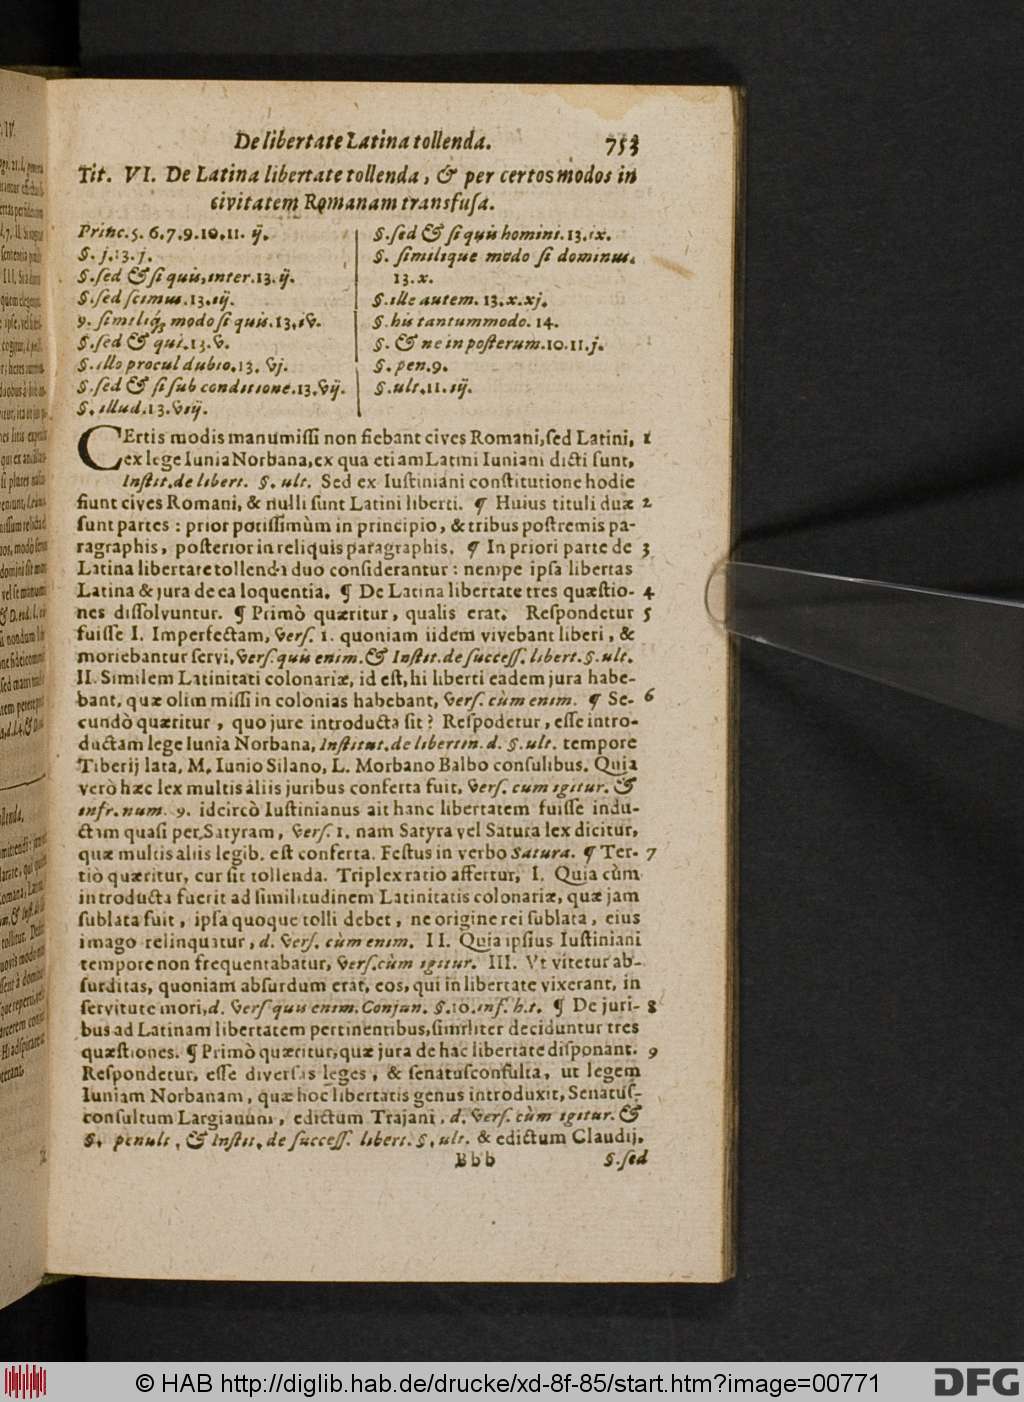 De libertate Latina tollenda. 753
Tit. VI. De Latina libertate tollenda, & per certos modos in
civitatem Romanam transfusa.
Princ. 5. 6. 7. 9. 10. 11. ij.
§. j. 13. j.
§. sed & si quis, inter. 13. ij.
§. sed scimus. 13. iij.
9. similiq; modo si quis. 13. iv.
§. sed & qui. 13. v.
§. illo procul dubio. 13. vj.
§. sed & si sub conditione. 13. vij.
§. illud. 13. viij.
§. sed & si quis homini. 13. ix.
§. similique modo si dominus.
13. x.
§. ille autem. 13. x. xj.
§. his tantummodo. 14.
§. & ne in posterum. 10. 11. j.
§. pen. 9.
§. ult. 11. iij.
CErtis modis manumissi non fiebant cives Romani, sed Latini, 1
ex lege Iunia Norbana, ex qua etiam Latini Iuniani dicti sunt,
Instit. de libert. §. ult. Sed ex Iustiniani constitutione hodie
fiunt cives Romani, & nulli sunt Latini liberti. ¶ Huius tituli duæ 2
sunt partes : prior potissimùm in principio, & tribus postremis pa-
ragraphis, posterior in reliquis paragraphis. ¶ In priori parte de 3
Latina libertate tollenda duo considerantur : nempe ipsa libertas
Latina & jura de ea loquentia. ¶ De Latina libertate tres quæstio- 4
nes dissolvuntur. ¶ Primò quæritur, qualis erat. Respondetur 5
fuisse I. Imperfectam, Vers. 1. quoniam iidem vivebant liberi, &
moriebantur servi, Vers. quis enim. & Instit. de success. libert. §. ult.
II. Similem Latinitati colonariæ, id est, hi liberti eadem jura habe-
bant, quæ olim missi in colonias habebant, Vers. cùm enim. ¶ Se- 6
cundò quæritur, quo jure introducta sit? Respōdetur, esse intro-
ductam lege Iunia Norbana, Institut. de libertin. d. §. ult. tempore
Tiberij lata, M. Iunio Silano, L. Morbano Balbo consulibus. Quia
verò hæc lex multis aliis juribus conferta fuit, Vers. cum igitur. &
infr. num. 9. idcircò Iustinianus ait hanc libertatem fuisse indu-
ctam quasi per Satyram, Vers. 1. nam Satyra vel Satura lex dicitur,
quæ multis aliis legib. est conferta. Festus in verbo Satura. ¶ Ter- 7
tiò quæritur, cur sit tollenda. Triplex ratio affertur, I. Quia cùm
introducta fuerit ad similitudinem Latinitatis colonariæ, quæ jam
sublata fuit, ipsa quoque tolli debet, ne origine rei sublata, eius
imago relinquatur, d. Vers. cùm enim. II. Quia ipsius Iustiniani
tempore non frequentabatur, Vers. cùm igitur. III. Vt vitetur ab-
surditas, quoniam absurdum erat, eos, qui in libertate vixerant, in
servitute mori, d. Vers quis enim. Conjun. §. 10. inf. h. t. ¶ De juri- 8
bus ad Latinam libertatem pertinentibus, similiter deciduntur tres
quæstiones. ¶ Primò quæritur, quæ jura de hac libertate disponant. 9
Respondetur, esse diversas leges, & senatusconsulta, ut legem
Iuniam Norbanam, quæ hoc libertatis genus introduxit, Senatus-
consultum Largianum, edictum Trajani, d. Vers. cùm igitur. &
§. penult, & Instit. de success. libert. §. ult. & edictum Claudij,
Bbb §. sed
© HAB http://diglib.hab.de/drucke/xd-8f-85/start.htm?image=00771
DFG